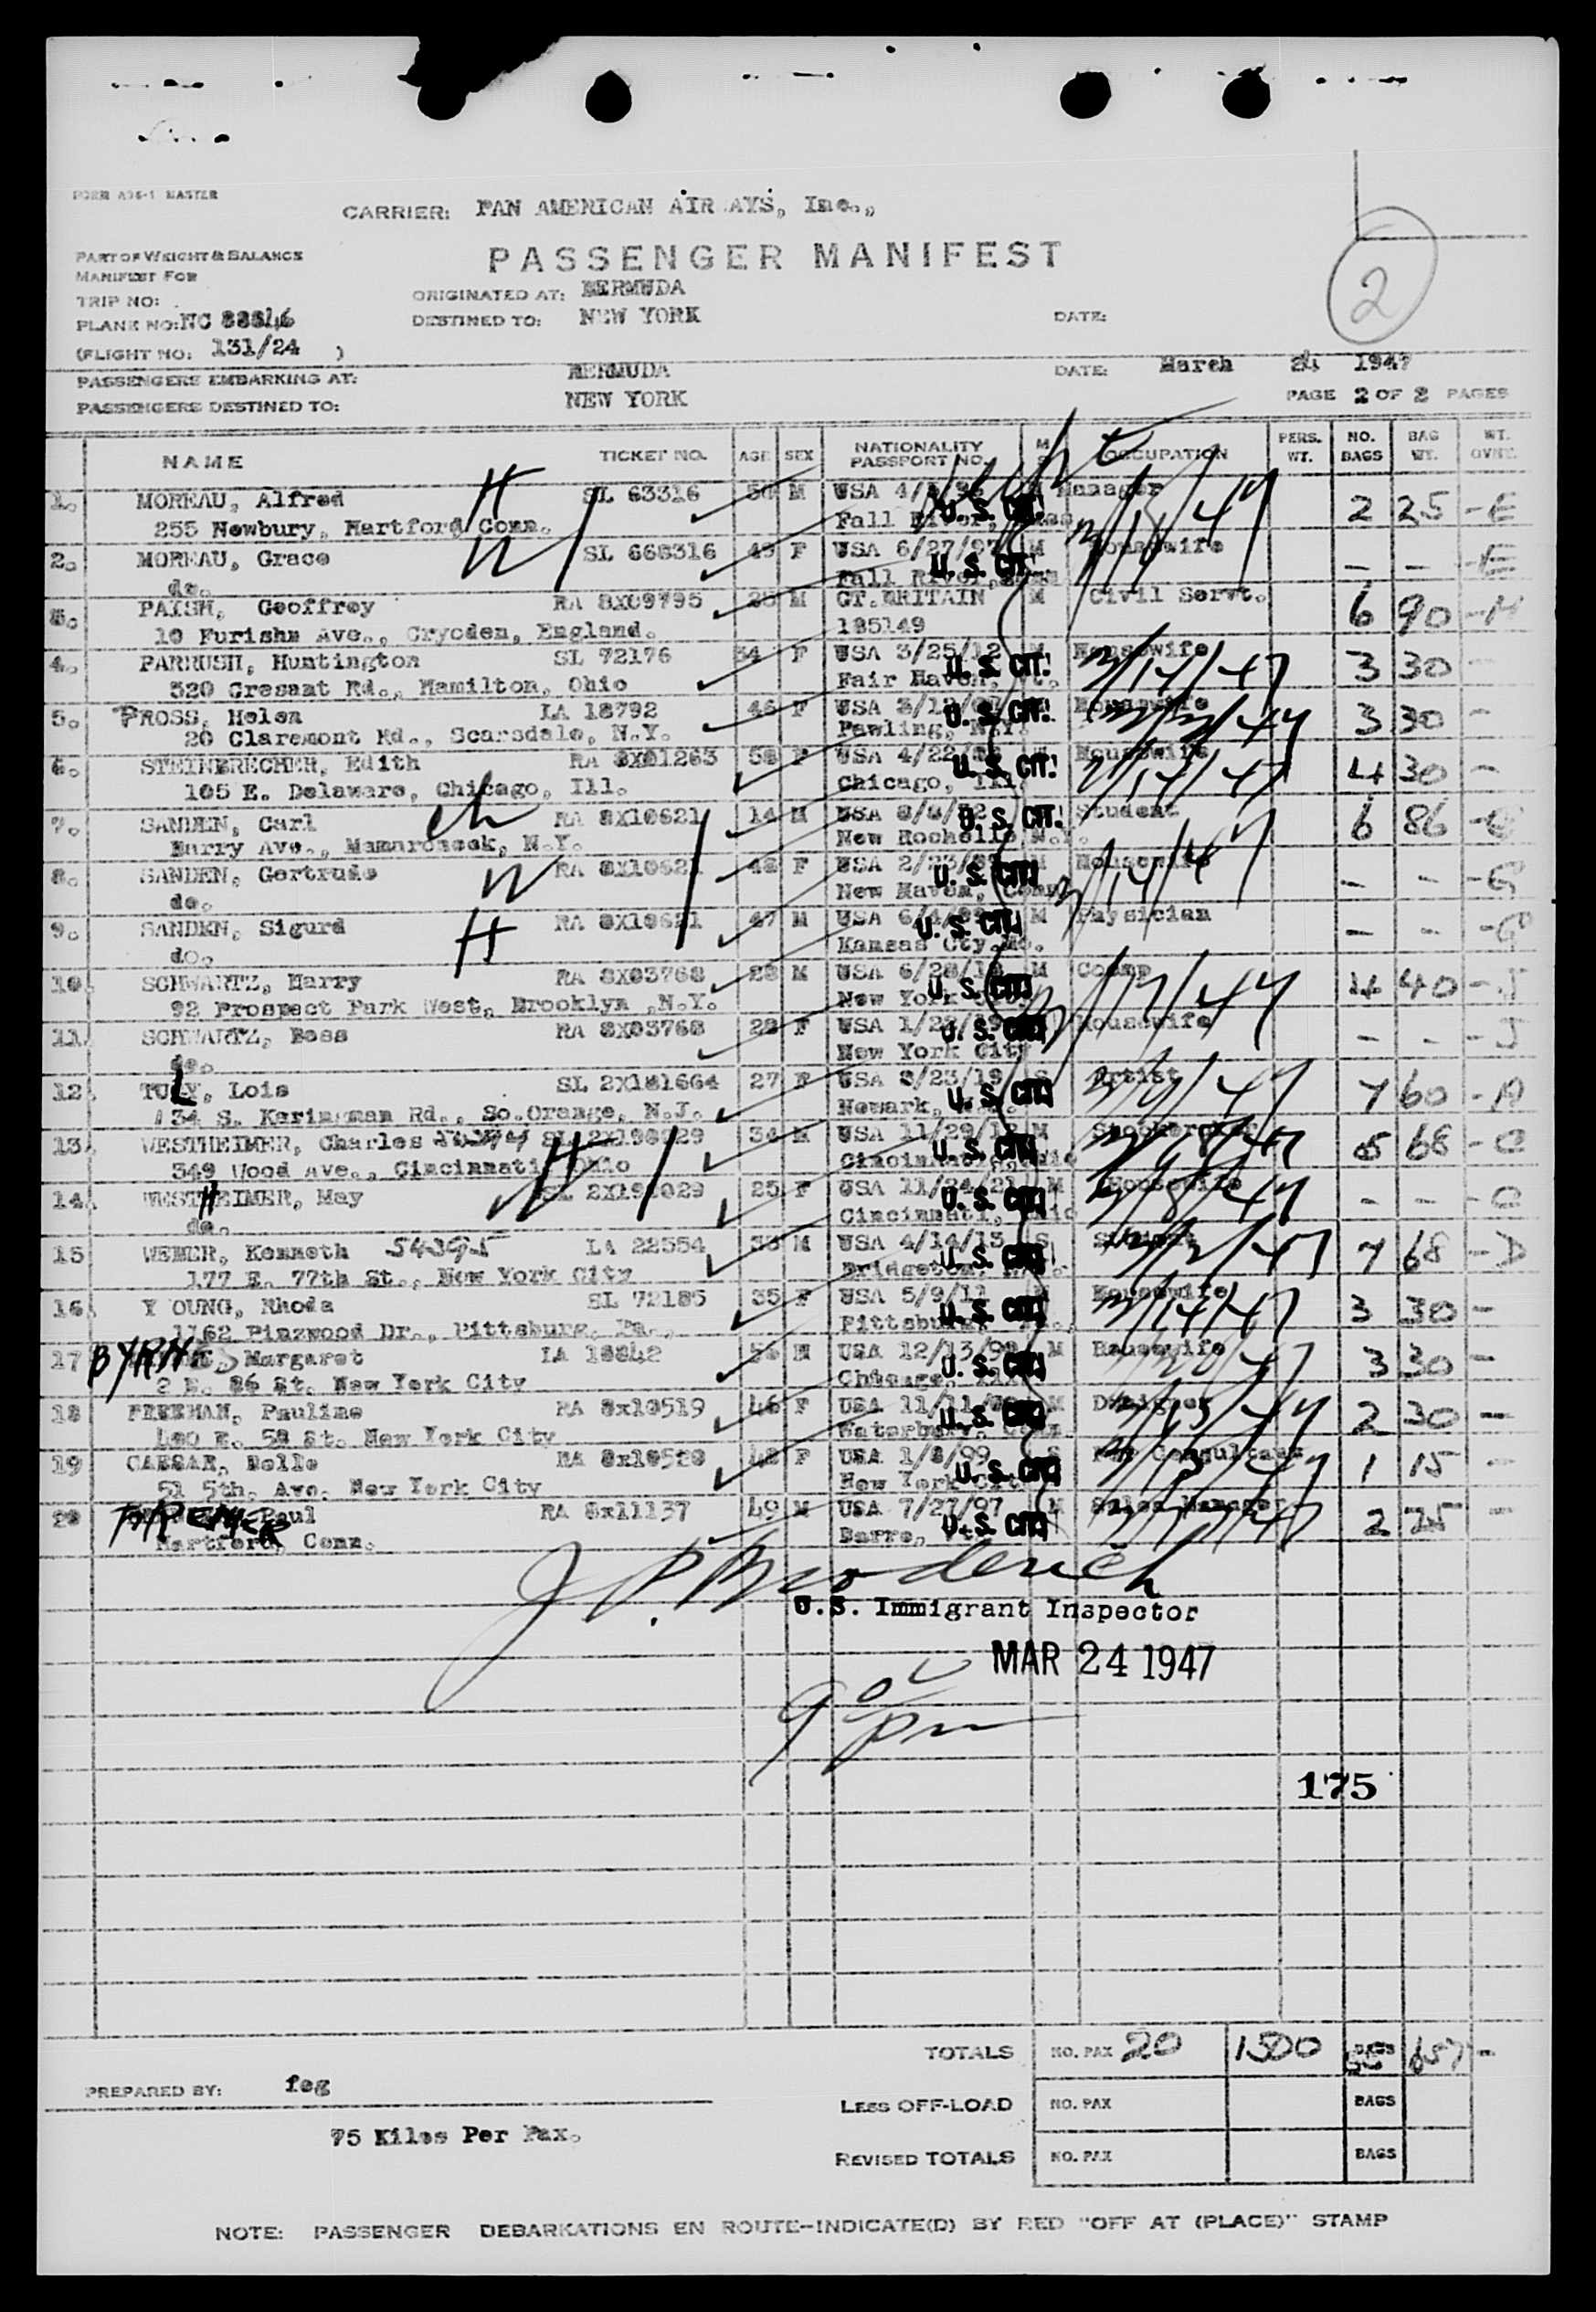 FORM A36-1 MASTER
CARRIER: PAN AMERICAN AIR AYS, Inc.,
PASSENGER MANIFEST
PART OF WEIGHT & BALANCE
MANIFEST FOR
TRIP NO:
ORIGINATED AT: BERMUDA
PLANE NO: NC 88846
DESTINED TO: NEW YORK
DATE:
2
(FLIGHT NO: 131/24 )
PASSENGERS EMBARKING AT: BERMUDA
DATE: March 24 1947
PASSENGERS DESTINED TO: NEW YORK
PAGE 2 OF 2 PAGES
NAME TICKET NO. AGE SEX NATIONALITY PASSPORT NO. M S OCCUPATION PERS. WT. NO. BAGS BAG WT. WT. OVNT.
1. MOREAU, Alfred H SL 63316 50 M USA U. S. CIT. Manager 2 25 - E
255 Newbury, Hartford Conn. Fall River,
2. MOREAU, Grace W SL 668316 49 F USA 6/27/97 M U. S. CIT. Housewife - - - E
do. Fall River,
3. PAISH, Geoffrey RA 8X09795 25 M GT. BRITAIN M Civil Servt. 6 90 - H
10 Furishm Ave., Cryoden, England. 185149
4. PARRUSH, Huntington SL 72176 34 F USA 3/25/12 U. S. CIT. Housewife 3/14/47 3 30 -
320 Cresant Rd., Hamilton, Ohio Fair Haven,
5. PROSS, Helen LA 18792 46 F USA U. S. CIT. Housewife 3 30 -
20 Claremont Rd., Scarsdale, N.Y. Pawling, N.Y.
6. STEINBRECHER, Edith RA 8X01263 58 F USA 4/22/ U. S. CIT. Housewife 3/14/47 4 30 -
105 E. Delaware, Chicago, Ill. Chicago, Ill.
7. SANDEN, Carl ch RA 8X10621 14 M USA U. S. CIT. Student 6 86 - G
Barry Ave., Mamaroneck, N.Y. New Rochelle N.Y.
8. SANDEN, Gertrude W RA 8X10621 48 F USA 2/23/ U. S. CIT. Housewife 3/14/47 - - - G
do. New Haven, Conn
9. SANDEN, Sigurd H RA 8X10621 47 M USA U. S. CIT. M Physician - - - G
do. Kansas Cty.Mo.
10. SCHWARTZ, Harry RA 8X03768 28 M USA 6/28/18 M U. S. CIT. 4 40 - J
92 Prospect Park West, Brooklyn ,N.Y. New York
11. SCHWARTZ, Bess RA 8X03768 28 F USA U. S. CIT. Housewife - - - J
do. New York City
12. TULY, Lois SL 2X181664 27 F USA 8/23/19 S U. S. CIT. Artist 7 60 - A
134 S. Karingman Rd., So.Orange, N.J. Newark,
13. WESTHEIMER, Charles SL 2X198029 34 M USA 11/29/12 M U. S. CIT. 5 68 - O
349 Wood Ave., Cincinnati Ohio H Cincinnati,
14. WESTHEIMER, May W SL 2X198029 25 F USA 11/24/21 M U. S. CIT. Housewife 3/8/47 - - - O
do. Cincinnati,
15 WEBER, Kenneth 54395 LA 22554 33 M USA 4/14/13 S U. S. CIT. 7 68 - D
177 E. 77th St., New York City Bridgeton,
16. Y OUNG, Rhoda SL 72185 35 F USA 5/9/11 U. S. CIT. Housewife 3/14/47 3 30 -
1162 Pinewood Dr., Pittsburg, Pa., Pittsburg,
17 BYRNE, Margaret LA 18842 USA 12/13/90 M U. S. CIT. Housewife 3 30 -
2 E. 86 St. New York City Chicago,
18 FREEMAN, Pauline RA 8x10519 46 F USA 11/11/ M U. S. CIT. Designer 2 30 -
400 E. 58 St. New York City Waterbury, Conn
19 CAESAR, Belle RA 8x10520 48 F USA 1/8/99 S U. S. CIT. Consultant 1 15 -
51 5th. Ave. New York City New York Cit
20 Paul RA 8x11137 49 M USA 7/27/97 M U. S. CIT. Sales Manager 2 25 -
Hartford, Conn. Barre,
J P. Broderick
U.S. Immigrant Inspector
MAR 24 1947
9 00 pm
175
TOTALS NO. PAX 20 1500 BAGS 55 657 -
PREPARED BY: feg
LESS OFF-LOAD NO. PAX BAGS
75 Kilos Per Pax.
REVISED TOTALS NO. PAX BAGS
NOTE: PASSENGER DEBARKATIONS EN ROUTE-INDICATE(D) BY RED "OFF AT (PLACE)" STAMP